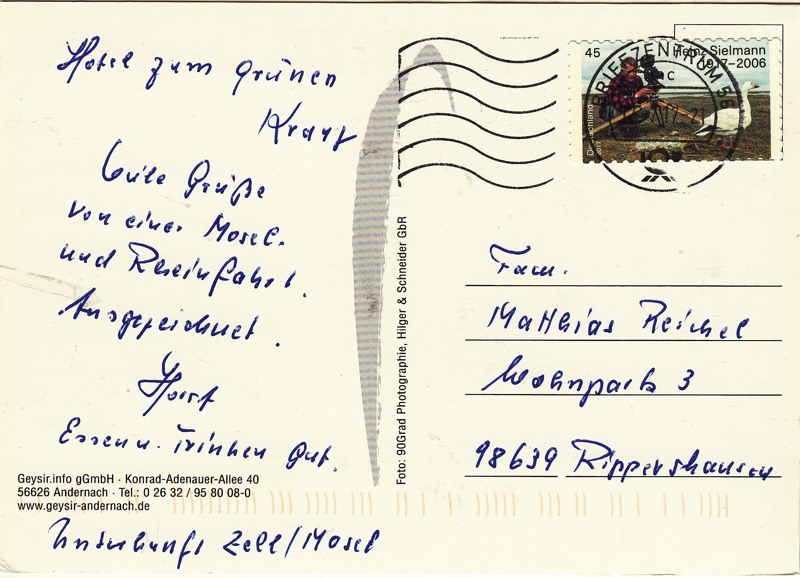 Hotel zum Grünen
Kranz
Gute Grüße
von einer Mosel.
und Rheinfahrt.
Ausgezeichnet.
Horst
Essen u. Trinken gut.
Geysir.info gGmbH · Konrad-Adenauer-Allee 40
56626 Andernach · Tel.: 0 26 32 / 95 80 08-0
www.geysir-andernach.de
Zell/Mosel
Foto: 90Grad Photographie, Hilger & Schneider GbR
45
Heinz Sielmann
1917–2006
Deutschland
BRIEFZENTRUM 56
Fam.
Matthias Reichel
Wohnpark 3
98639 Rippershausen